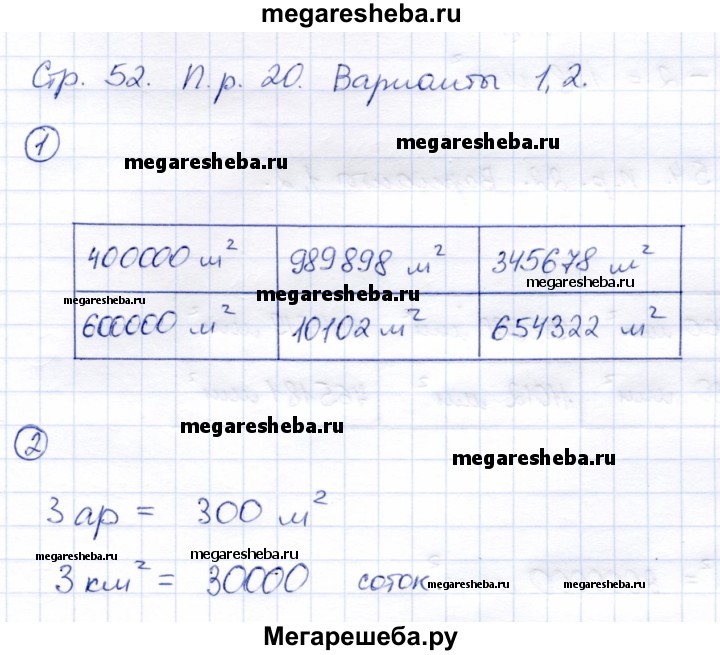 megaresheba.ru
Стр. 52. П.р. 20. Варианты 1,2.
1
megaresheba.ru
megaresheba.ru
400000 м² 989898 м² 345678 м²
megaresheba.ru
megaresheba.ru
megaresheba.ru
600000 м² 10102 м² 654322 м²
2
megaresheba.ru
megaresheba.ru
3 ар = 300 м²
megaresheba.ru
megaresheba.ru
3 км² = 30000 соток
megaresheba.ru
megaresheba.ru
Мегарешеба.ру